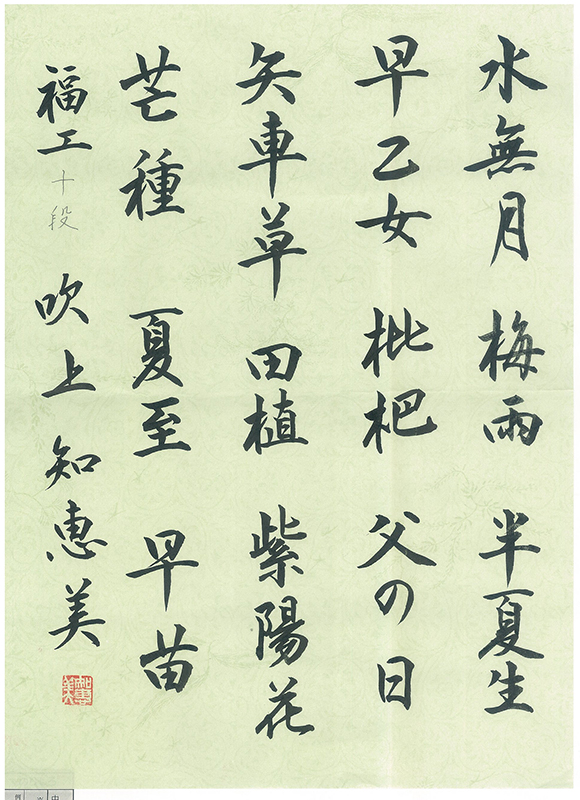 水無月 梅雨 半夏生
早乙女 枇杷 父の日
矢車草 田植 紫陽花
芒種 夏至 早苗
福工 十段 吹上知恵美